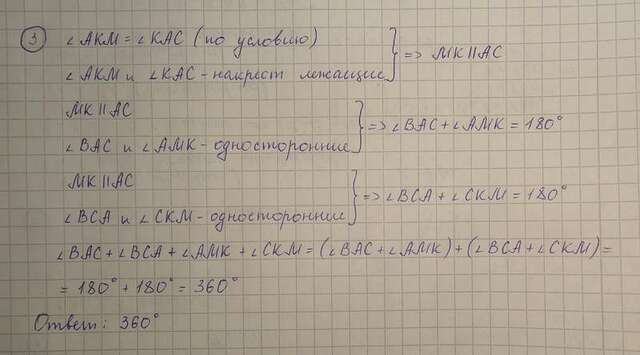 ③ ∠AKM = ∠KAC (по условию)
∠AKM и ∠KAC - накрест лежащие } => MK || AC
MK || AC
∠BAC и ∠AMK - односторонние } => ∠BAC + ∠AMK = 180°
MK || AC
∠BCA и ∠CKM - односторонние } => ∠BCA + ∠CKM = 180°
∠BAC + ∠BCA + ∠AMK + ∠CKM = (∠BAC + ∠AMK) + (∠BCA + ∠CKM) =
= 180° + 180° = 360°
Ответ: 360°